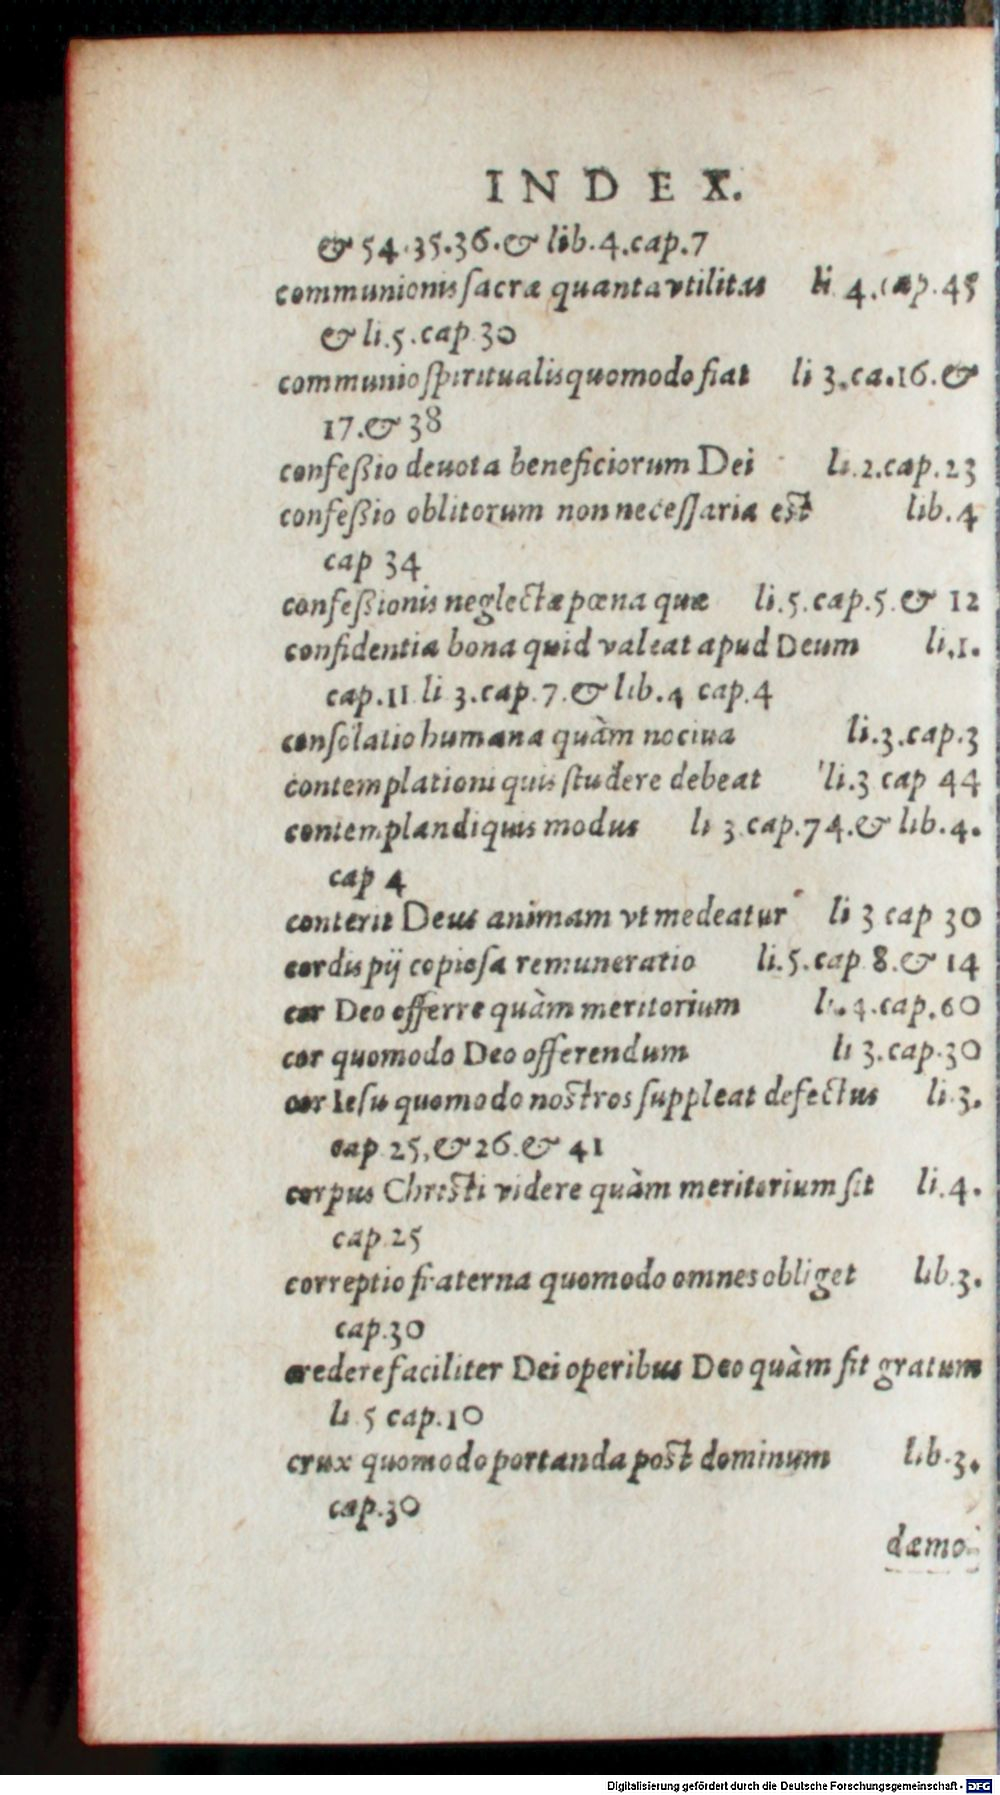 INDEX.
& 54.35.36.& lib.4.cap.7
communionis sacræ quanta vtilitas li 4.cap.45
& li.5.cap 30
communio spiritualis quomodo fiat li 3.ca.16.&
17.& 38
confeßio deuota beneficiorum Dei li.2.cap.23
confeßio oblitorum non necessaria est lib.4
cap 34
confeßionis neglectæ pœna quæ li.5.cap.5.& 12
confidentia bona quid valeat apud Deum li.1.
cap.11 li 3.cap.7.& lib.4 cap.4
consolatio humana quàm nociua li.3.cap.3
contemplationi quis studere debeat li.3 cap 44
contemplandi quis modus li 3 cap.74.& lib.4.
cap 4
conterit Deus animam vt medeatur li 3 cap 30
cordis pij copiosa remuneratio li.5.cap 8.& 14
cor Deo offerre quàm meritorium li.4.cap.60
cor quomodo Deo offerendum li 3.cap.30
cor Iesu quomodo nostros suppleat defectus li.3.
cap 25,& 26.& 41
corpus Christi videre quàm meritorium sit li.4.
cap 25
correptio fraterna quomodo omnes obliget lib.3.
cap.30
credere faciliter Dei operibus Deo quàm sit gratum
li 5 cap.10
crux quomodo portanda post dominum lib.3.
cap.30
dæmo-
Digitalisierung gefördert durch die Deutsche Forschungsgemeinschaft - DFG